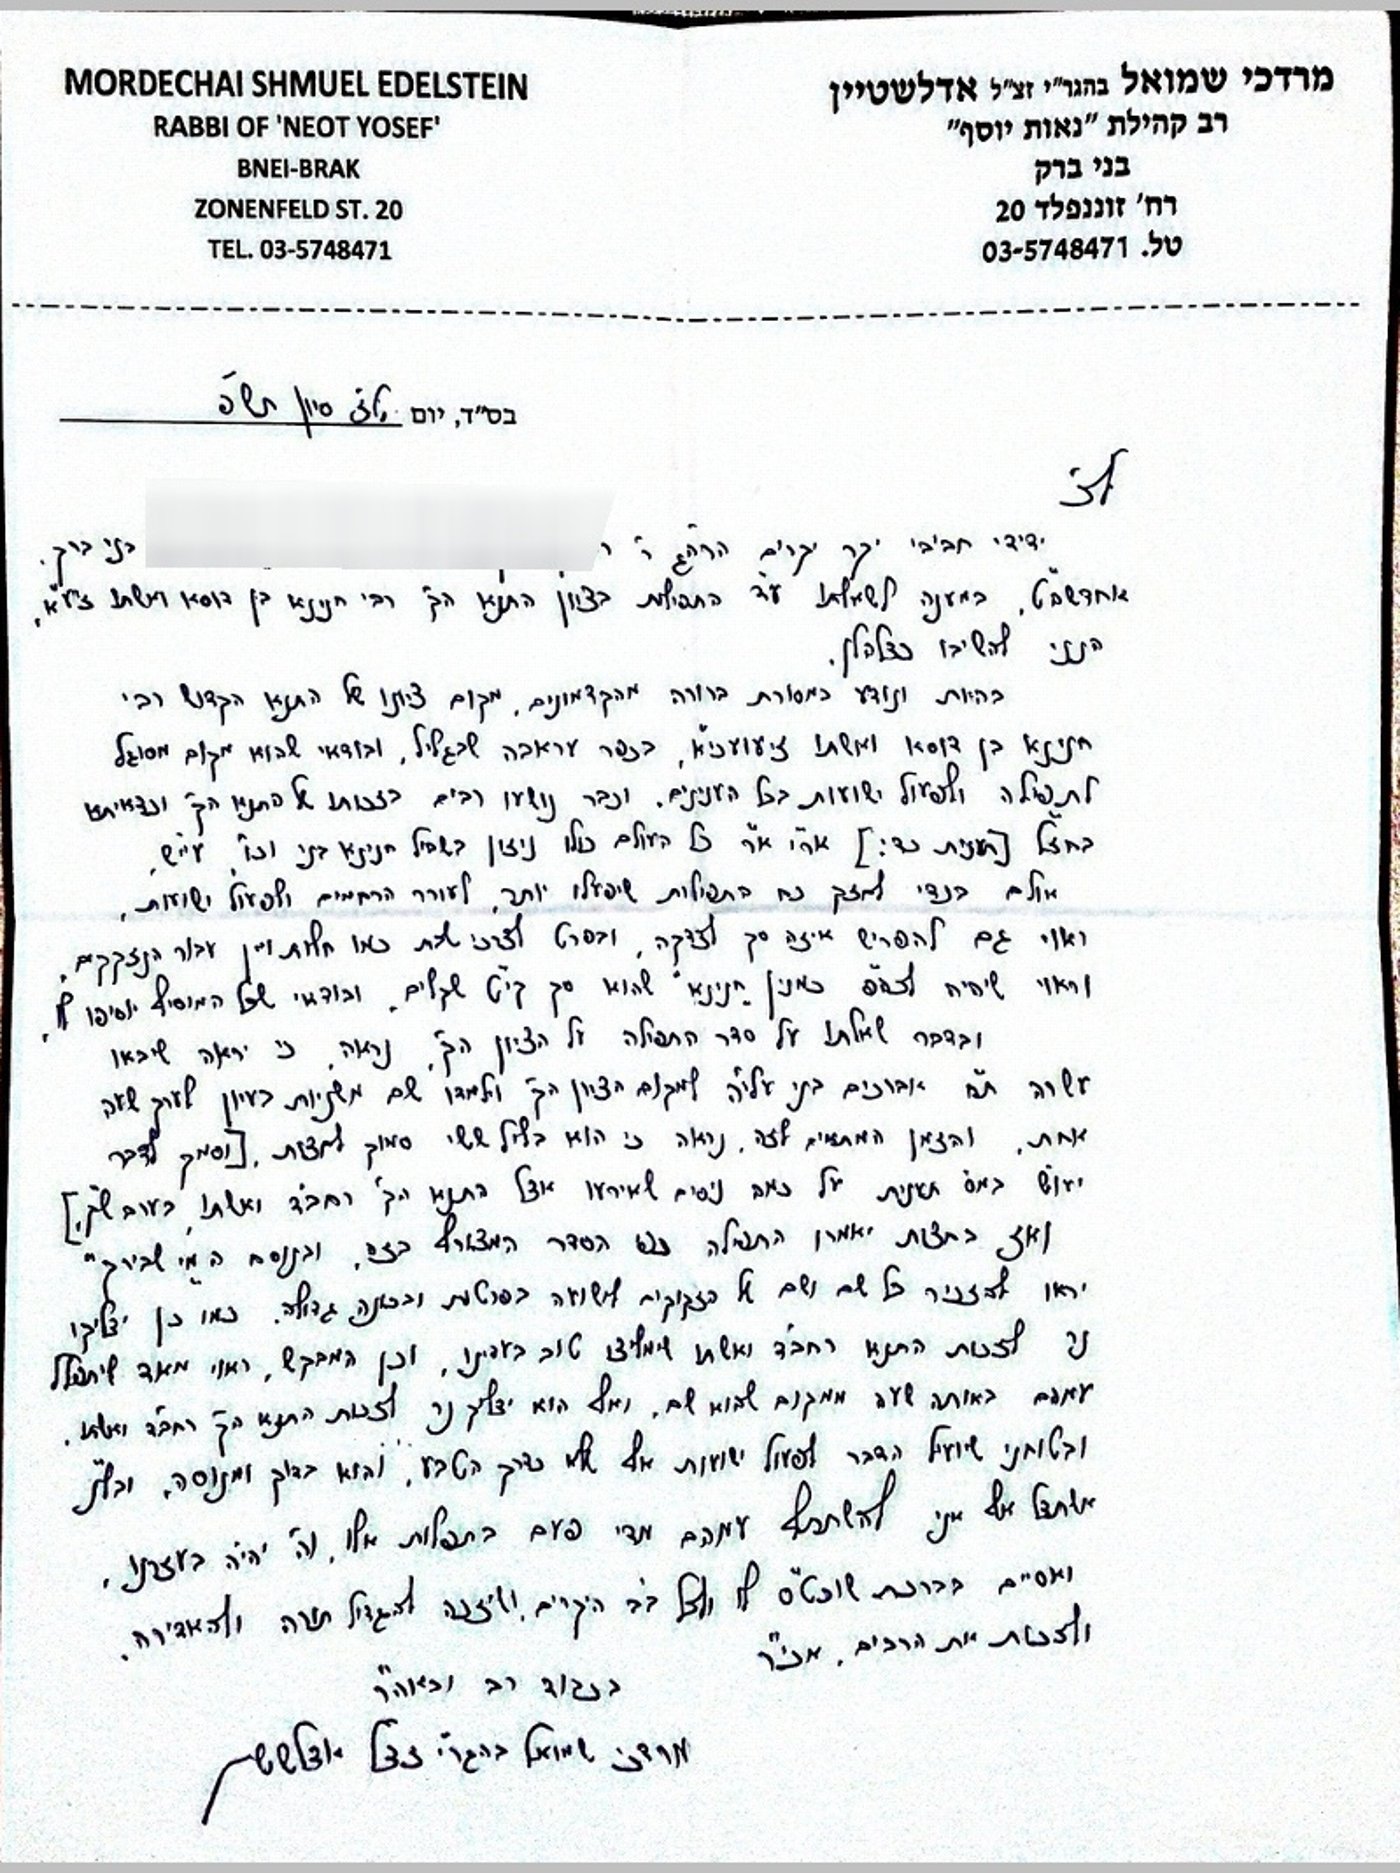 MORDECHAI SHMUEL EDELSTEIN
RABBI OF 'NEOT YOSEF'
BNEI-BRAK
ZONENFELD ST. 20
TEL. 03-5748471
מרדכי שמואל בהגר״י זצ״ל אדלשטיין
רב קהילת ״נאות יוסף״
בני ברק
רח׳ זוננפלד 20
טל. 03-5748471
בס״ד, יום סיון תש״פ
ידידי חביבי יקר יקרים הרה״ג ר׳ בני ברק.
אחדשה״ט, במענה לשאלתו ע״ד התפילות בציון התנא הק׳ רבי חנינא בן דוסא ואשתו זיע״א,
הנני להשיבו כדלהלן.
בהיות ונודע במסורת ברורה מהקדמונים, מקום ציונו של התנא הקדוש רבי
חנינא בן דוסא ואשתו זיעועכי״א, בכפר עראבה שבגליל, ובודאי שהוא מקום מסוגל
לתפילה ולפעול ישועות בכל הענינים. וכבר נושעו רבים בזכותו של התנא הק׳ וכדאיתא
בחז״ל [תענית כד:] אר״י א״ר כל העולם כולו ניזון בשביל חנינא בני וכו׳, עיי״ש,
אולם בכדי לחזק כח התפילות שיפעלו יותר, לעורר הרחמים ולפעול ישועות,
ראוי גם להפריש איזה סך לצדקה, ובפרט לצרכי שבת כמו חלות ויין עבור הנזקקים,
וראוי שיהיה לכה״פ כמנין ״חנינא״ שהוא סך קי״ט שקלים, ובודאי שכל המוסיף יוסיפו לו,
ובדבר שאלתו על סדר התפילה על הציון הק׳, נראה, כי יראה שיבאו
עשרה ת״ח אברכים בני עליה למקום הציון הק׳ וילמדו שם משניות בעיון לערך שעה
אחת, והזמן המתאים לזה, נראה כי הוא בליל ששי סמוך לחצות, [וסמך לדבר
יעוי׳ במס׳ תענית על כמה ניסים שאירעו אצל התנא הק׳ רחב״ד ואשתו, בערב ש״ק,]
ואז בחצות יאמרו התפילה כפי הסדר המצורף בזה, ובנוסח ה״מי שבירך״
יראו להזכיר כל שם ושם של הזקוקים לישועה בפרטות ובכוונה גדולה. כמו כן ידליקו
נר לזכות התנא רחב״ד ואשתו שימליצו טוב בעדינו, וכן המבקש, ראוי מאד שיתפלל
עמהם באותה שעה ממקום שהוא שם, ואף הוא ידליק נר לזכות התנא הק׳ רחב״ד ואשתו.
ובטוחני שיועיל הדבר לפעול ישועות אף שלא כדרך הטבע, והוא בדוק ומנוסה, ובל״נ
אשתדל אף אני להשתתף עמהם מדי פעם בתפלות אלו, וה׳ יהיה בעזרנו,
ואסיים בברכת שוכט״ס לו ולכל ב״ב היקרים, ושיזכה להגדיל תורה ולהאדירה,
ולזכות את הרבים, אכי״ר
בכבוד רב ובאוה״ר
מרדכי שמואל בהגר״י זצ״ל אדלשטיין